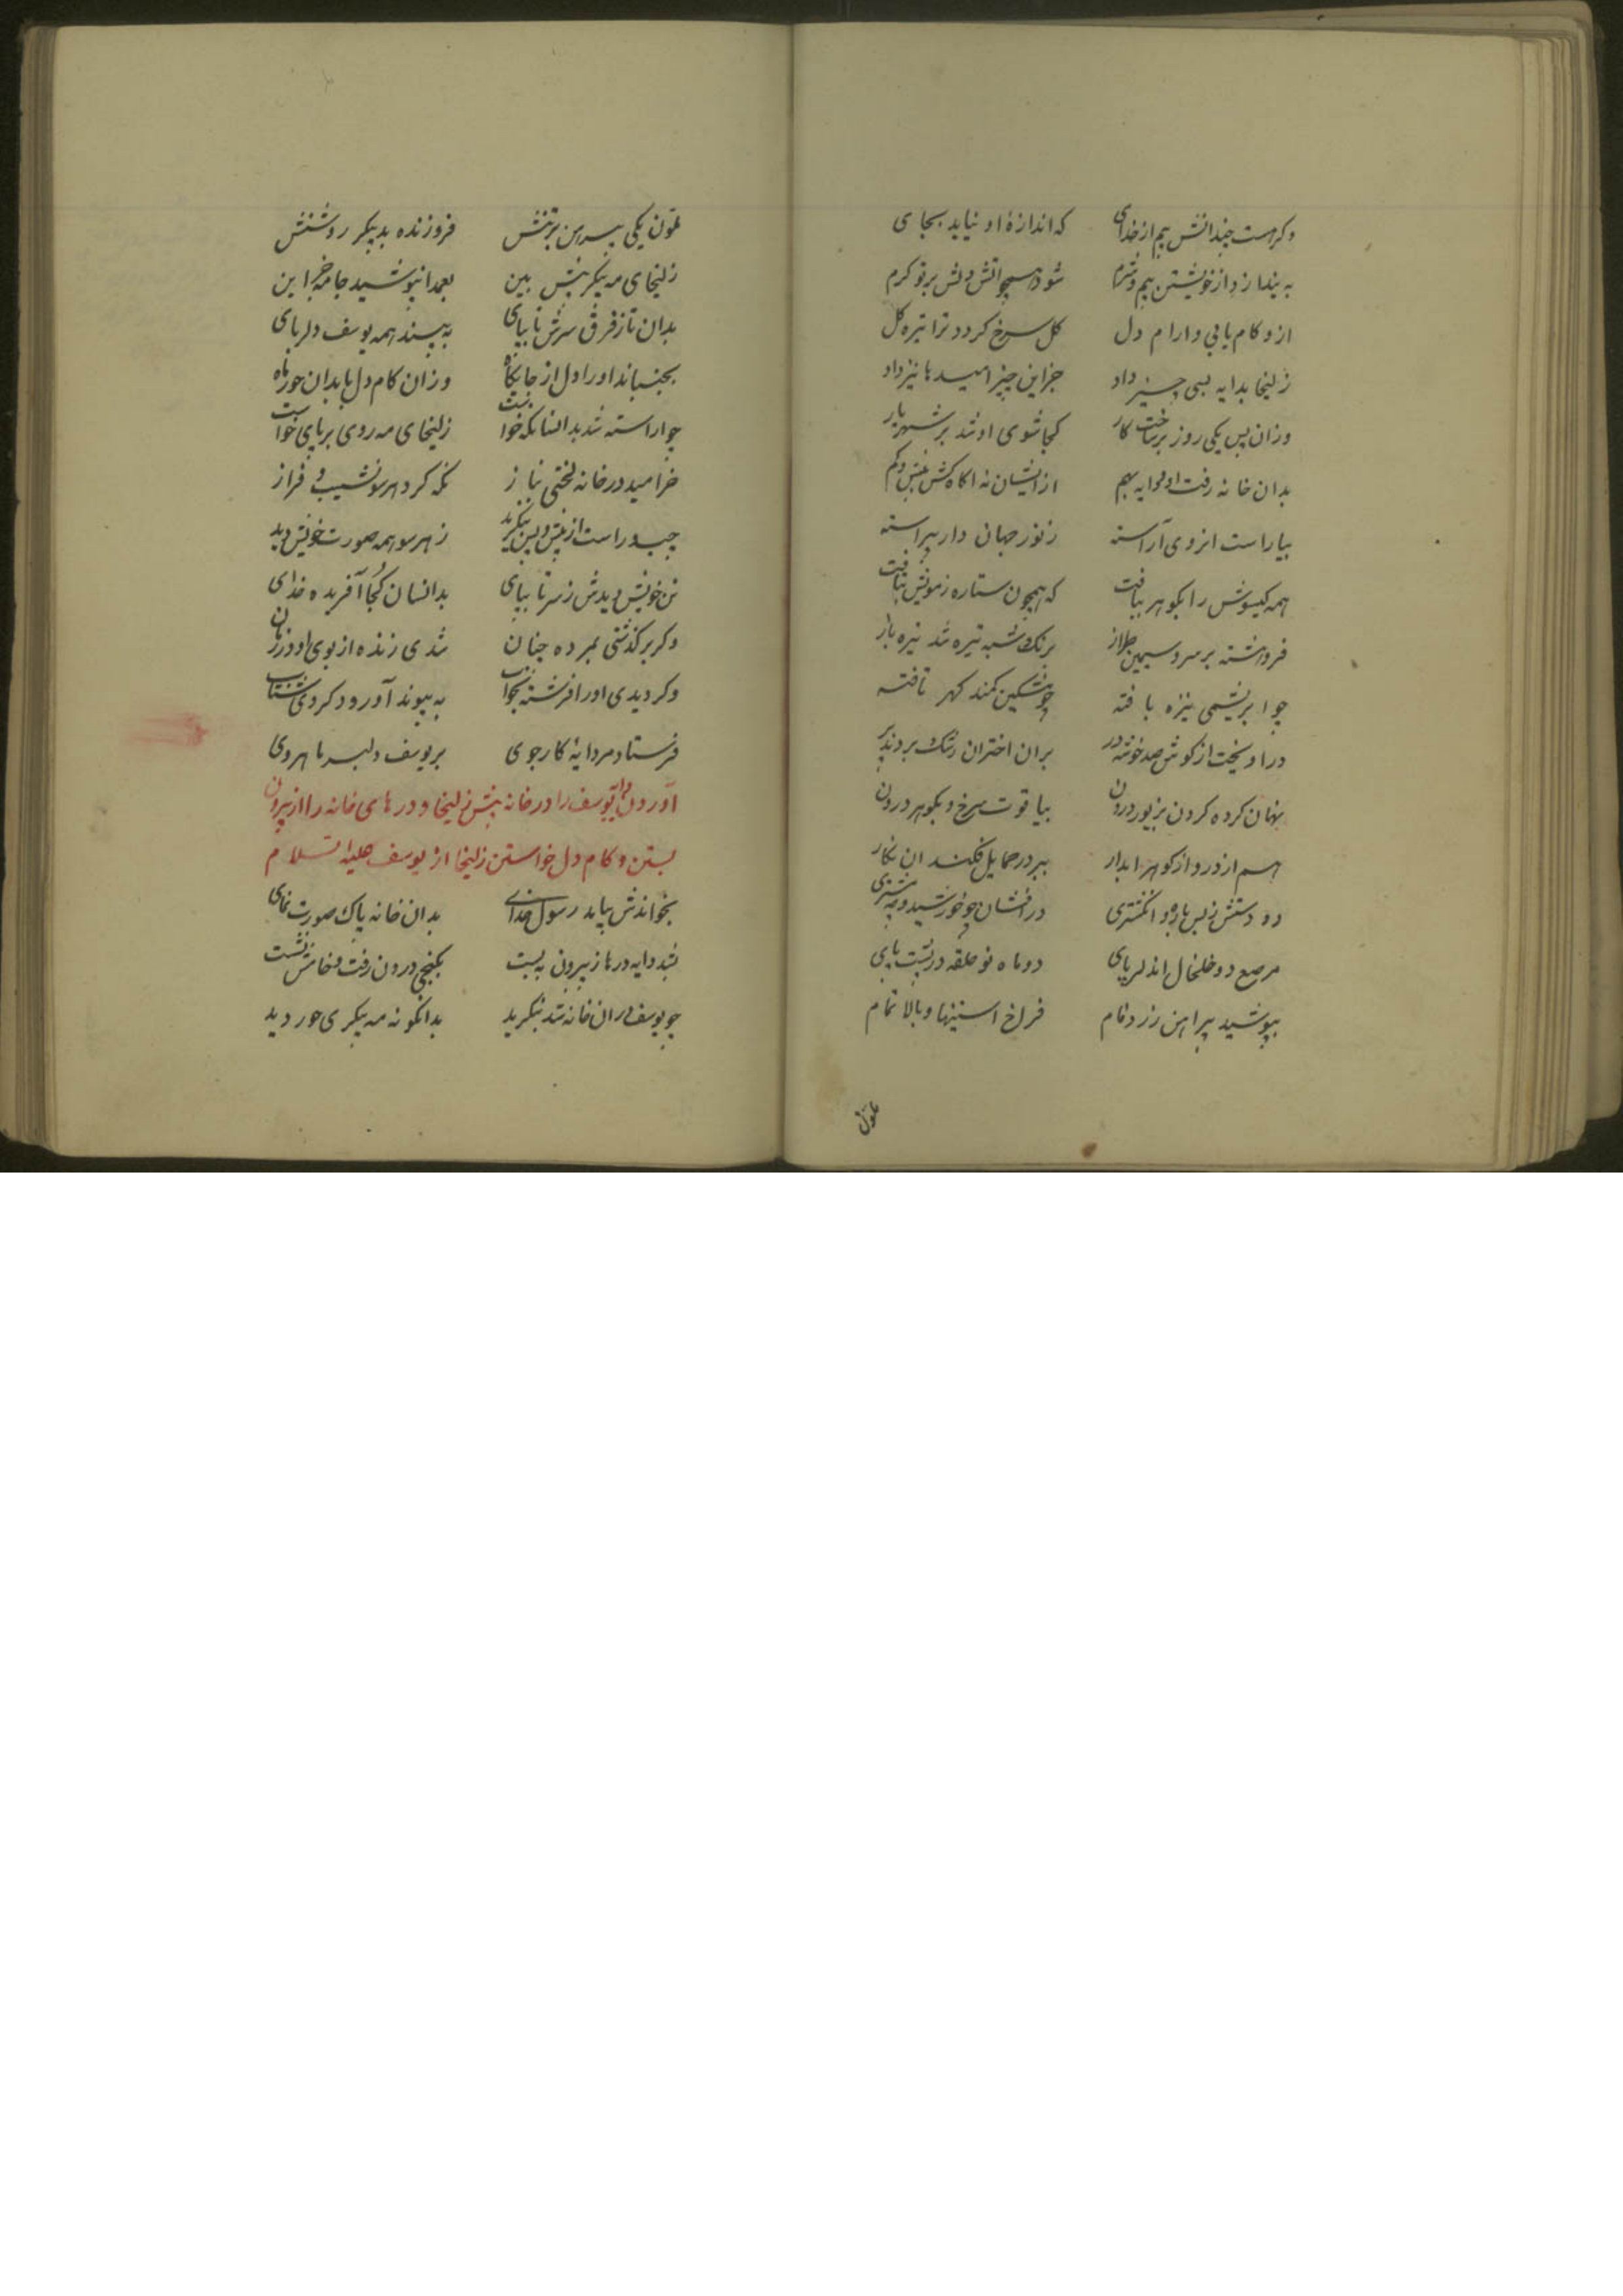 وکرهست چندانش بیم از خدای که اندازهٔ او نیاید بجای
بیندازد از خویشتن بیم و شرم شود همچو اتش دلش بر تو کرم
ازو کام یابی و ارام دل کل سرخ کردد ترا تیره کل
زلیخا بدایه بسی چیز داد جز این چیز امیدها نیز داد
وزان پس یکی روز برساخت کار کجا شوی او شد بر شهریار
بدان خانه رفت او و دایه بهم از ایشان نه اکاه کس بیش و کم
بیاراست انروی آراسته ز نور جهان دار پیراسته
همه کیسوش را بکوهر بتافت که همچون ستاره زمویش بتافت
فروهشته بر سرو سیمین طراز برنک شبه تیره شد تیره باز
چو ابریشمی نیزه بافته چو مشکین کمند کهر تافته
دراویخت از کوش صد خوشه در بران اختران رشک بردند پر
نهان کرده کردن بزیور درون بیاقوت سرخ و بکوهر درون
هم از در و از کوهر ابدار ببر در حمایل فکند ان نکار
دو دستش ز بس یاره و انکشتری درافشان چو خورشید و چو مشتری
مرصع دو خلخال اندر پای دو ماه نو حلقه در پشت پای
بپوشید پیراهن زرد فام فراخ استینها و بالا تمام
ملون
ملون یکی پیرهن بر تنش فروزنده بد پیکر روشنش
زلیخای مه پیکر پیش بین بعمدا نپوشید جامه جز این
بدان تا ز فرق سرش تا بپای به بیند همه یوسف دلربای
بجنباند او را دل از جایکاه وزان کام دل یابد ان حور ماه
چو اراسته شد بدانسانکه خواست زلیخای مه روی بر پای خواست
خرامید در خانه لختی بناز نکه کرد هر سو نشیب و فراز
چپ و راست از پیش و پس بنکرید ز هر سو همه صورت خویش دید
تن خویش دیدش ز سر تا بپای بدانسان کجا آفریده خدای
وکر برکذشتی بمرده چنان شدی زنده از بوی او در زمان
وکر دیدی او را فرشته بخواب به پیوند آورد کردی شتاب
فرستاد مر دایهٔ کارجوی بر یوسف دلبر ماهروی
آوردن دایه یوسف را در خانه پیش زلیخا و درهای خانه را از بیرون
بستن و کام دل خواستن زلیخا از یوسف علیه السلام
بخواندش بیامد رسول خدای بدان خانه پاک صورت نمای
بشد دایه درها ز بیرون به بست بکنجی درون رفت و خامش نشست
چو یوسف دران خانه شد بنکرید بدانکونه مه پیکری حور دید